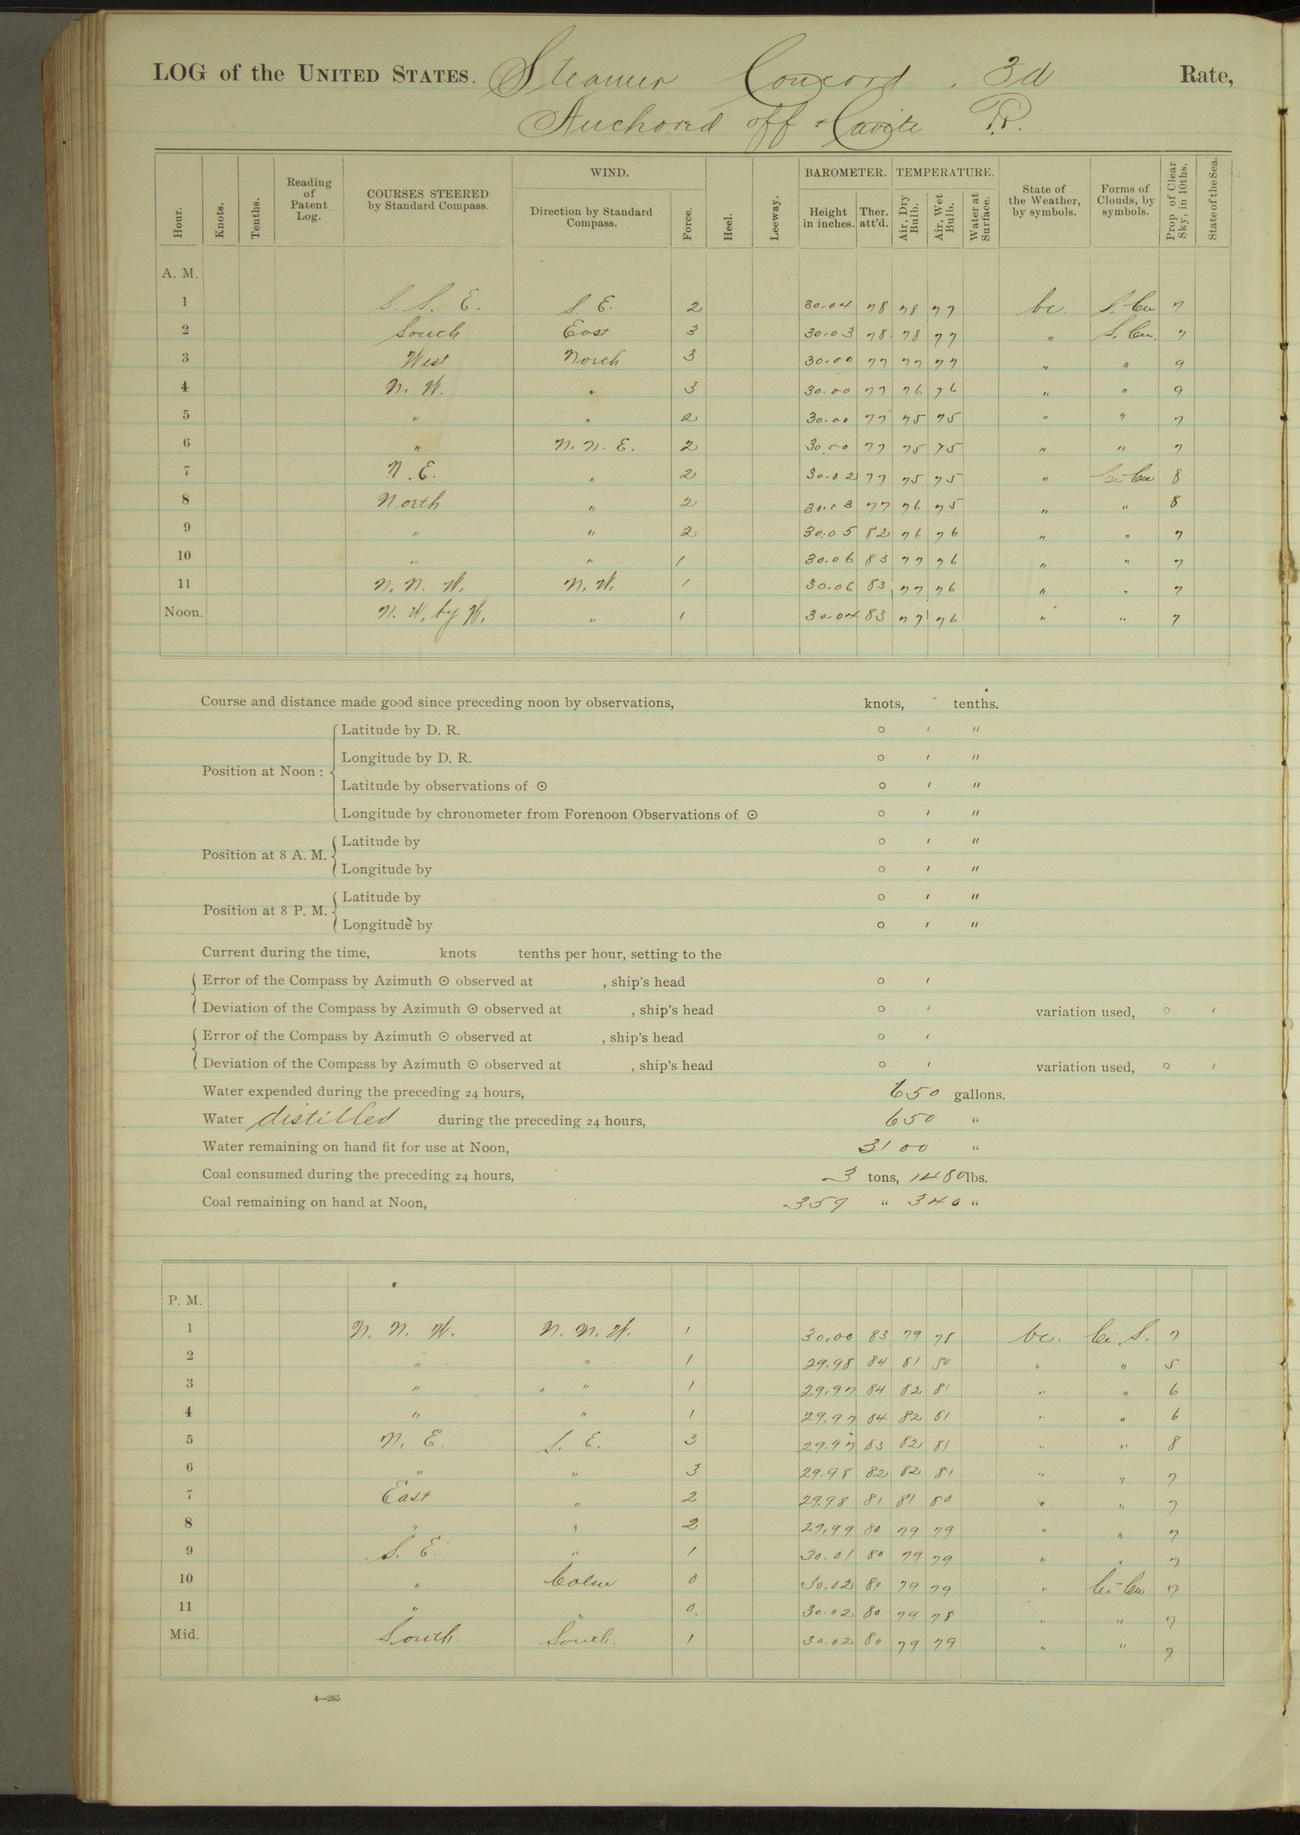 LOG of the UNITED STATES. Steamer Concord . 3d Rate,
Anchored off Cavite P.I.
Hour. Knots. Tenths. Reading of Patent Log. COURSES STEERED by Standard Compass. WIND. Direction by Standard Compass. Force. Heel. Leeway. BAROMETER. Height in inches. Ther. att'd. TEMPERATURE. Air, Dry Bulb. Air, Wet Bulb. Water at Surface. State of the Weather, by symbols. Forms of Clouds, by symbols. Prop of Clear Sky, in 10ths. State of the Sea.
A. M.
1 S. S. E. S E. 2 30.04 78 78 77 bc. S. Cu 7
2 South East 3 30.03 78. 78 77 " S. Cu. 7
3 West North 3 30.00 77 77 77 " " 9
4 N. W. " 3 30.00 77 76 76 " " 9
5 " " 2 30.00 77 75 75 " " 7
6 " N. N. E. 2 30.00 77 75 75 " " 7
7 N. E. " 2 30.02 77 75 75 " Ci-Cu 8
8 North " 2 30.03 77 76 75 " " 8
9 " " 2 30.05 82 76 76 " " 7
10 " " 1 30.06 83 77 76 " " 7
11 N. N. W. N. W. 1 30.06 83 77 76 " " 7
Noon. N. W. by W. " 1 30.04 83 77 76 " " 7
Course and distance made good since preceding noon by observations, knots, tenths.
Position at Noon :
Latitude by D. R. ° ′ ″
Longitude by D. R. ° ′ ″
Latitude by observations of ☉ ° ′ ″
Longitude by chronometer from Forenoon Observations of ☉ ° ′ ″
Position at 8 A. M.
Latitude by ° ′ ″
Longitude by ° ′ ″
Position at 8 P. M.
Latitude by ° ′ ″
Longitude by ° ′ ″
Current during the time, knots tenths per hour, setting to the
Error of the Compass by Azimuth ☉ observed at , ship's head ° ′
Deviation of the Compass by Azimuth ☉ observed at , ship's head ° ′ variation used, ° ′
Error of the Compass by Azimuth ☉ observed at , ship's head ° ′
Deviation of the Compass by Azimuth ☉ observed at , ship's head ° ′ variation used, ° ′
Water expended during the preceding 24 hours, 650 gallons.
Water distilled during the preceding 24 hours, 650 "
Water remaining on hand fit for use at Noon, 3100 "
Coal consumed during the preceding 24 hours, 3 tons, 1480 lbs.
Coal remaining on hand at Noon, 359 " 340 "
P. M.
1 N. N. W. N. N. W. 1 30.00 83 79 78 bc. Ci. S. 7
2 " " 1 29.98 84 81 80 " " 5
3 " " 1 29.97 84 82 81 " " 6
4 " " 1 29.97 84 82 81 " " 6
5 N. E. S. E. 3 29.97 83 82 81 " " 8
6 " " 3 29.98 82 82 81 " " 7
7 East " 2 29.98 81 81 80 " " 7
8 " " 2 29.99 80 79 79 " " 7
9 S. E. " 1 30.01 80 79 79 " " 7
10 " Calm 0 30.02 80 79 79 " Ci-Cu 7
11 " " 0. 30.02 80 79 78 " " 7
Mid. South. South. 1 30.02 80 79 79 " " 7
4—265